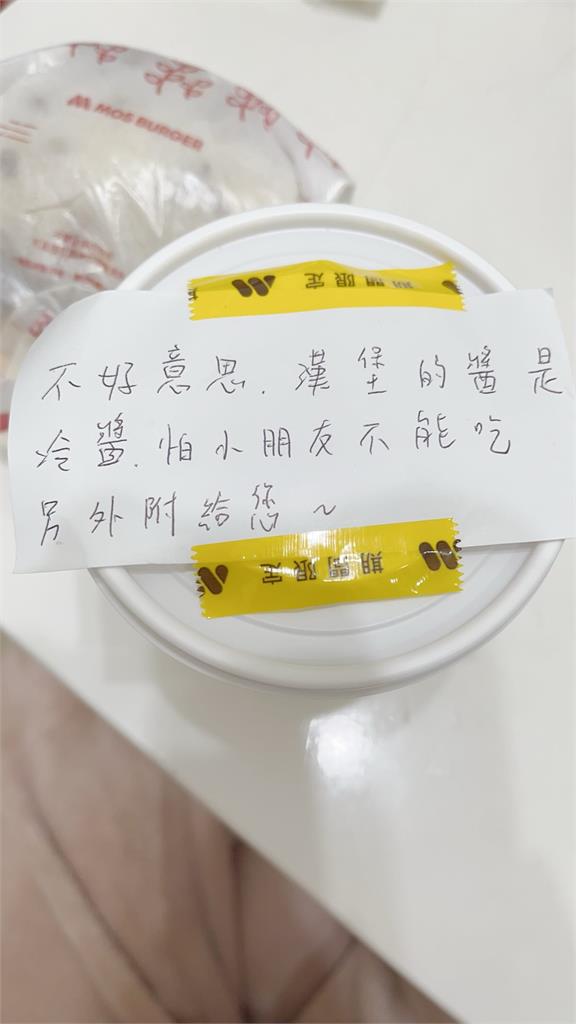 MOS BURGER
期間限定
不好意思.漢堡的醬是
冷醬.怕小朋友不能吃
另外附給您~
期間限定